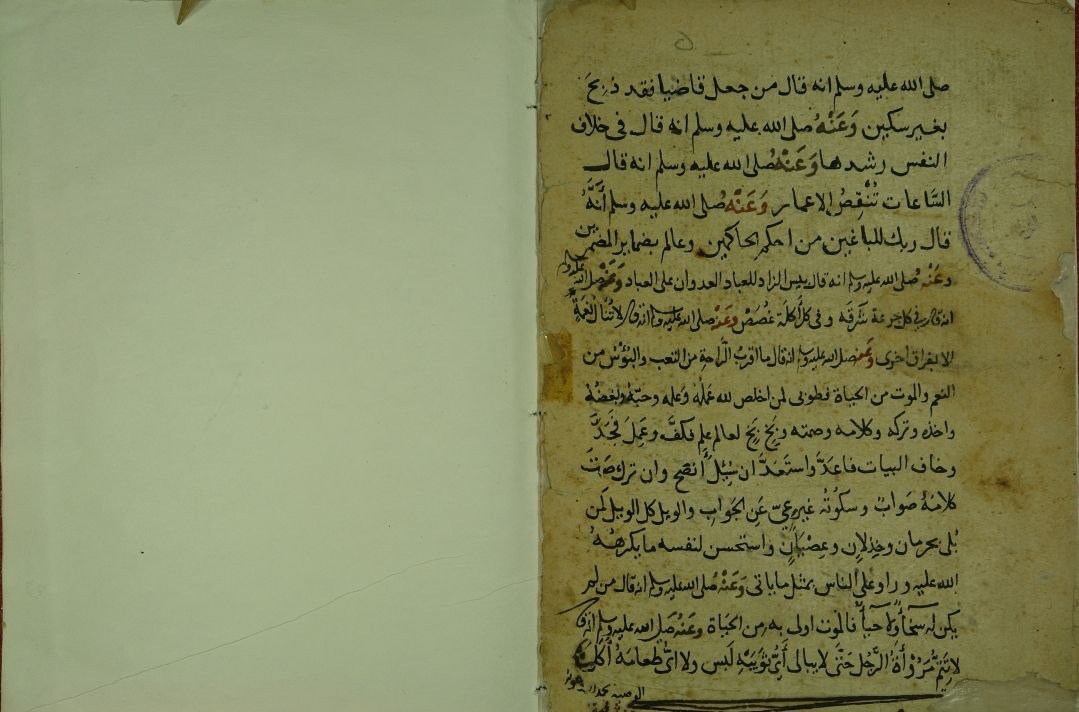 صلى الله عليه وسلم انه قال من جعل قاضيا فقد ذُبِحَ
بغير سكين وَعَنْهُ صلى الله عليه وسلم انه قال فى خلاف
النفس رشدها وَعَنْهُ صلى الله عليه وسلم انه قال
السَّاعات تُنْقِصُ الاعمار وَعَنْه صلى الله عليه وسلم أنَّهُ
قال ربك للباغين من احكم الحاكمين وعالم بضماير المضمرين
وعَنْه صلى الله عليه وسلم انه قال بيس الزاد للعباد العدوان على العباد وعَنْه صلى الله عليه وسلم
انه قال فى كل جرعة شَرقَه وفى كل أكلَة غُصَصْ وعَنْه صلى الله عليه وسلم انه قال لا تُنَال نِعْمَةٌ
الا بفراق اخرى وعَنه صلى الله عليه وسلم انه قال ما اقربُ الرَّاحة من التعب والبُؤْس من
النعم والموت من الحياة فطوبى لمن اخلص لله عَمَلَهُ وَعلمه وحبّهُ وبُغضَهُ
واخذه وتركه وكلامه وصمته وبَخٍ بَخٍ لعالم علم فكفَّ وعَمِلَ فَجَدَّ
وخاف البيات فاعَدَّ واستَعَدَّ ان سُئِلَ أنصح وان ترك صَمَتَ
كلامُهُ صَوابٌ وسكوتُه غير عِىّ عَنِ الجَوابِ والويل كل الويل لمن
بُلى بحرمان وخِذلانٍ وعِصْيَانٍ واستحسن لنفسه ما يكرههُ
الله عليه وراء على الناس بمثل ما ياتى وَعَنْهُ صلى الله عليه وسلم انه قال من لم
يكن له سَخآءٌ وَلا حَيآءٌ فالموت اولى به من الحَياة وعَنْهُ صَلى الله عليه وسلم انه قال
لا تتِمّ مُرُوْأةُ الرَّجُلِ حَتَّى لا يبالى أَىُّ ثَوْبَيْهِ لَبسَ ولا اىُّ طعامَيْه أكَل
الوصية بحمد الله